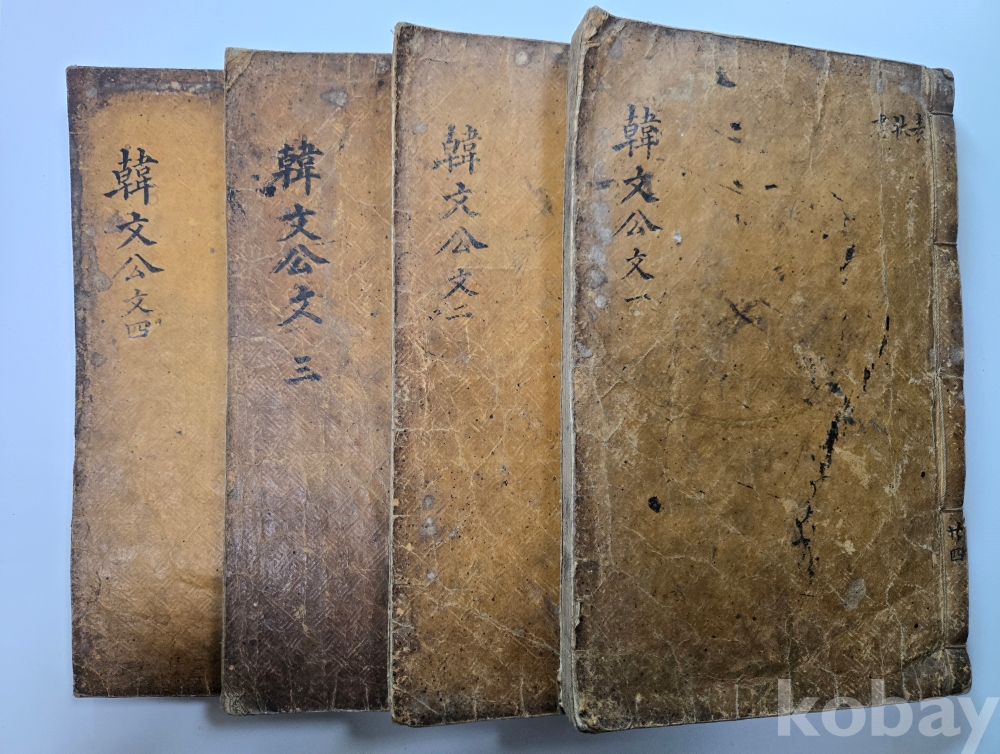 韓文公文一
韓文公文二
韓文公文三
韓文公文四
共四
kobay